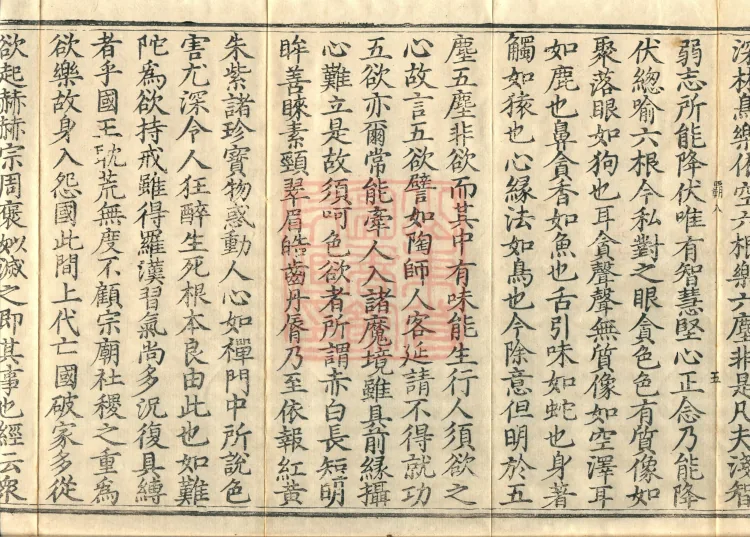 深村鳥樂依空六根樂六塵非是凡夫淺智
弱志所能降伏唯有智慧堅心正念乃能降
伏總喻六根今私對之眼貪色色有質像如
聚落眼如狗也耳貪聲聲無質像如空澤耳
如鹿也鼻貪香如魚也舌引味如蛇也身著
觸如猨也心緣法如鳥也今除意但明於五
塵五塵非欲而其中有味能生行人須欲之
心故言五欲譬如陶師人客延請不得就功
五欲亦爾常能牽人入諸魔境雖具前緣攝
心難立是故須呵色欲者所謂赤白長短明
眸善睞素頸翠眉皓齒丹脣乃至依報紅黃
朱紫諸珍寶物惑動人心如禪門中所說色
害尤深令人狂醉生死根本良由此也如難
陀為欲持戒雖得羅漢習氣尚多況復具縛
者乎國王耽荒無度不顧宗廟社稷之重為
欲樂故身入怨國此間上代亡國破家多從
欲起赫赫宗周褒姒滅之即其事也經云眾